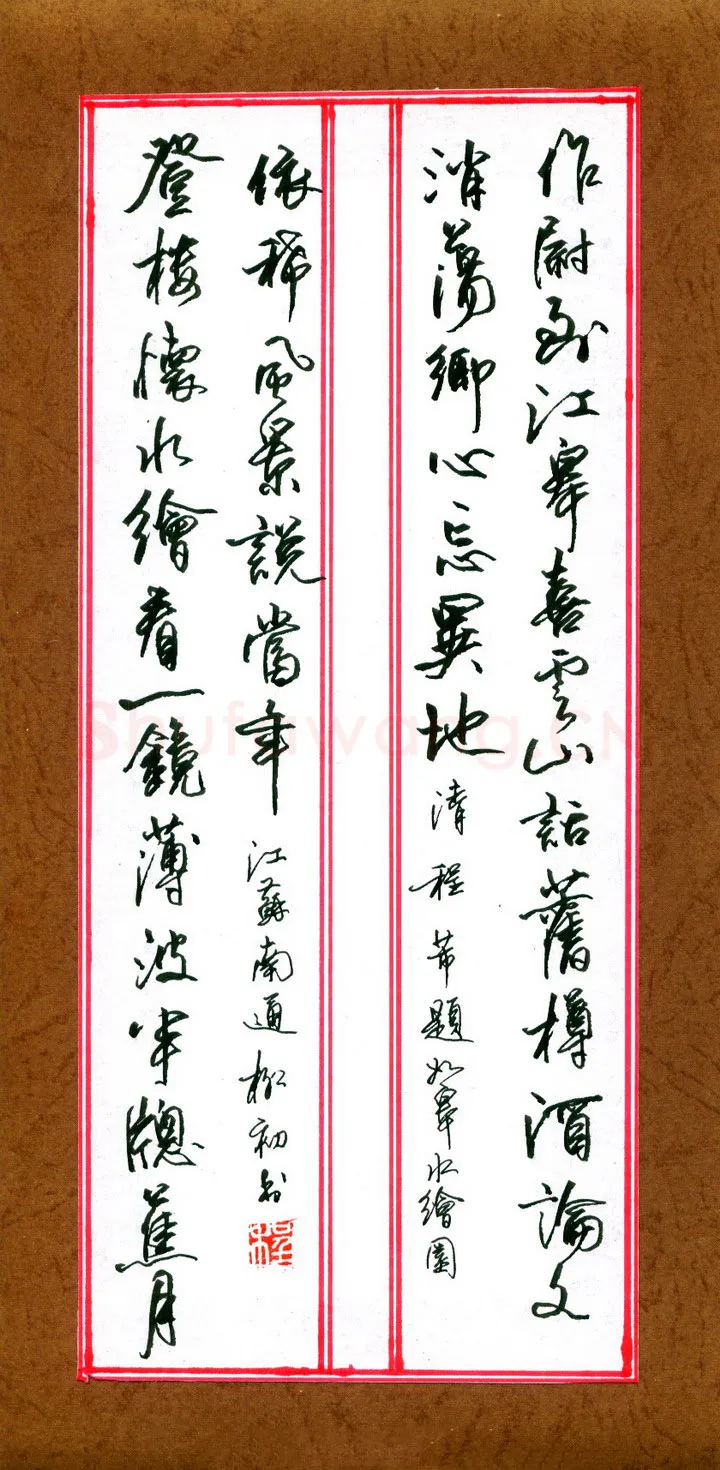 作尉到江皋喜雲山話舊樽酒論文
消蕩鄉心忘異地
清程芾題如皋水繪園
登樓懷水繪看一鏡薄波半牕蕉月
依稀風景說當年
江蘇南通松初書
Shufawang.CN